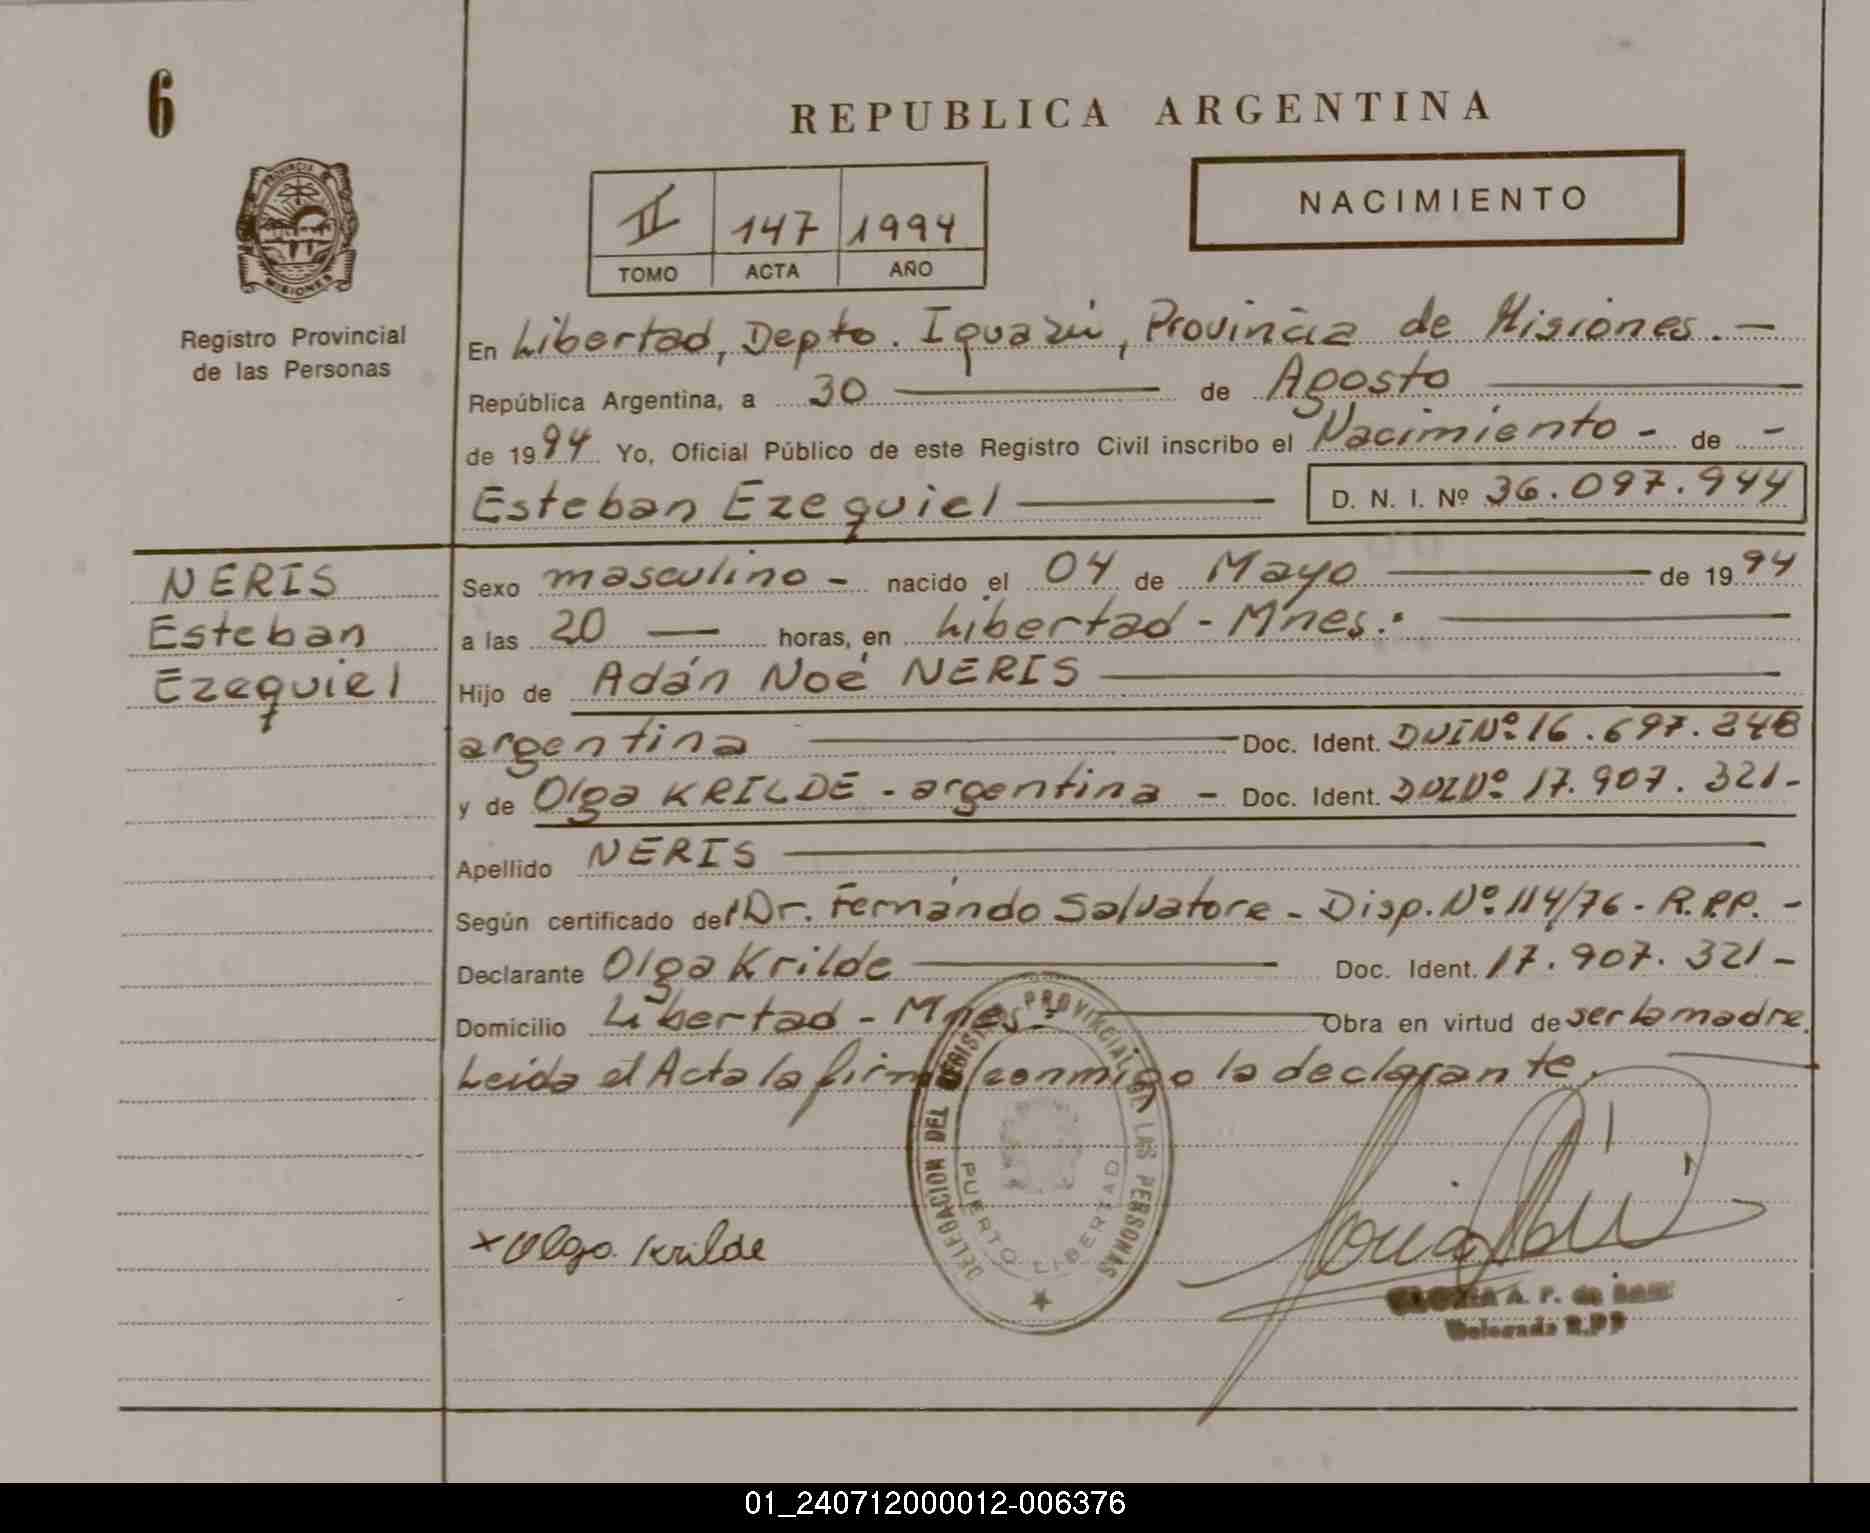 6
REPUBLICA ARGENTINA
PROVINCIA
MISIONES
Registro Provincial
de las Personas
II 147 1994
TOMO ACTA AÑO
NACIMIENTO
En Libertad, Depto. Iguazú, Provincia de Misiones. —
República Argentina, a 30 — de Agosto —
de 1994 Yo, Oficial Público de este Registro Civil inscribo el Nacimiento - de -
Esteban Ezequiel — D. N. I. Nº 36.097.944
NERIS
Esteban
Ezequiel
Sexo masculino - nacido el 04 de Mayo — de 1994
a las 20 — horas, en Libertad - Mnes.: —
Hijo de Adán Noé NERIS —
argentina — Doc. Ident. DNI Nº 16.697.248
y de Olga KRILDE - argentina - Doc. Ident. DNI Nº 17.907.321-
Apellido NERIS —
Según certificado del Dr. Fernándo Salvatore - Disp. Nº 114/76 - R.P.P. -
Declarante Olga Krilde — Doc. Ident. 17.907.321 -
Domicilio Libertad - Mnes.- — Obra en virtud de ser la madre.
Leida el Acta la firma conmigo la declarante. —
DELEGACION DEL REGISTRO PROVINCIAL DE LAS PERSONAS
PUERTO LIBERTAD
x Olga Krilde
A. F. de
Delegada R.P.P
01_240712000012-006376